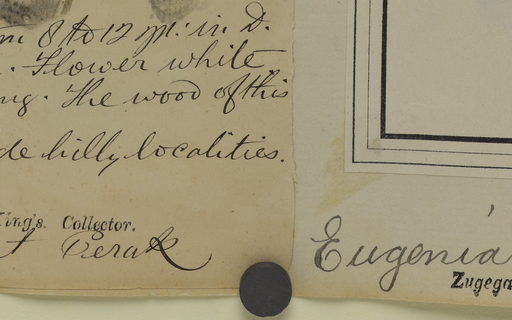 8 to 12 pt: in D.
. Flower white
ng. The wood of this
de hilly localities.
King's. Collector.
t Perak
Eugenia
Zugega